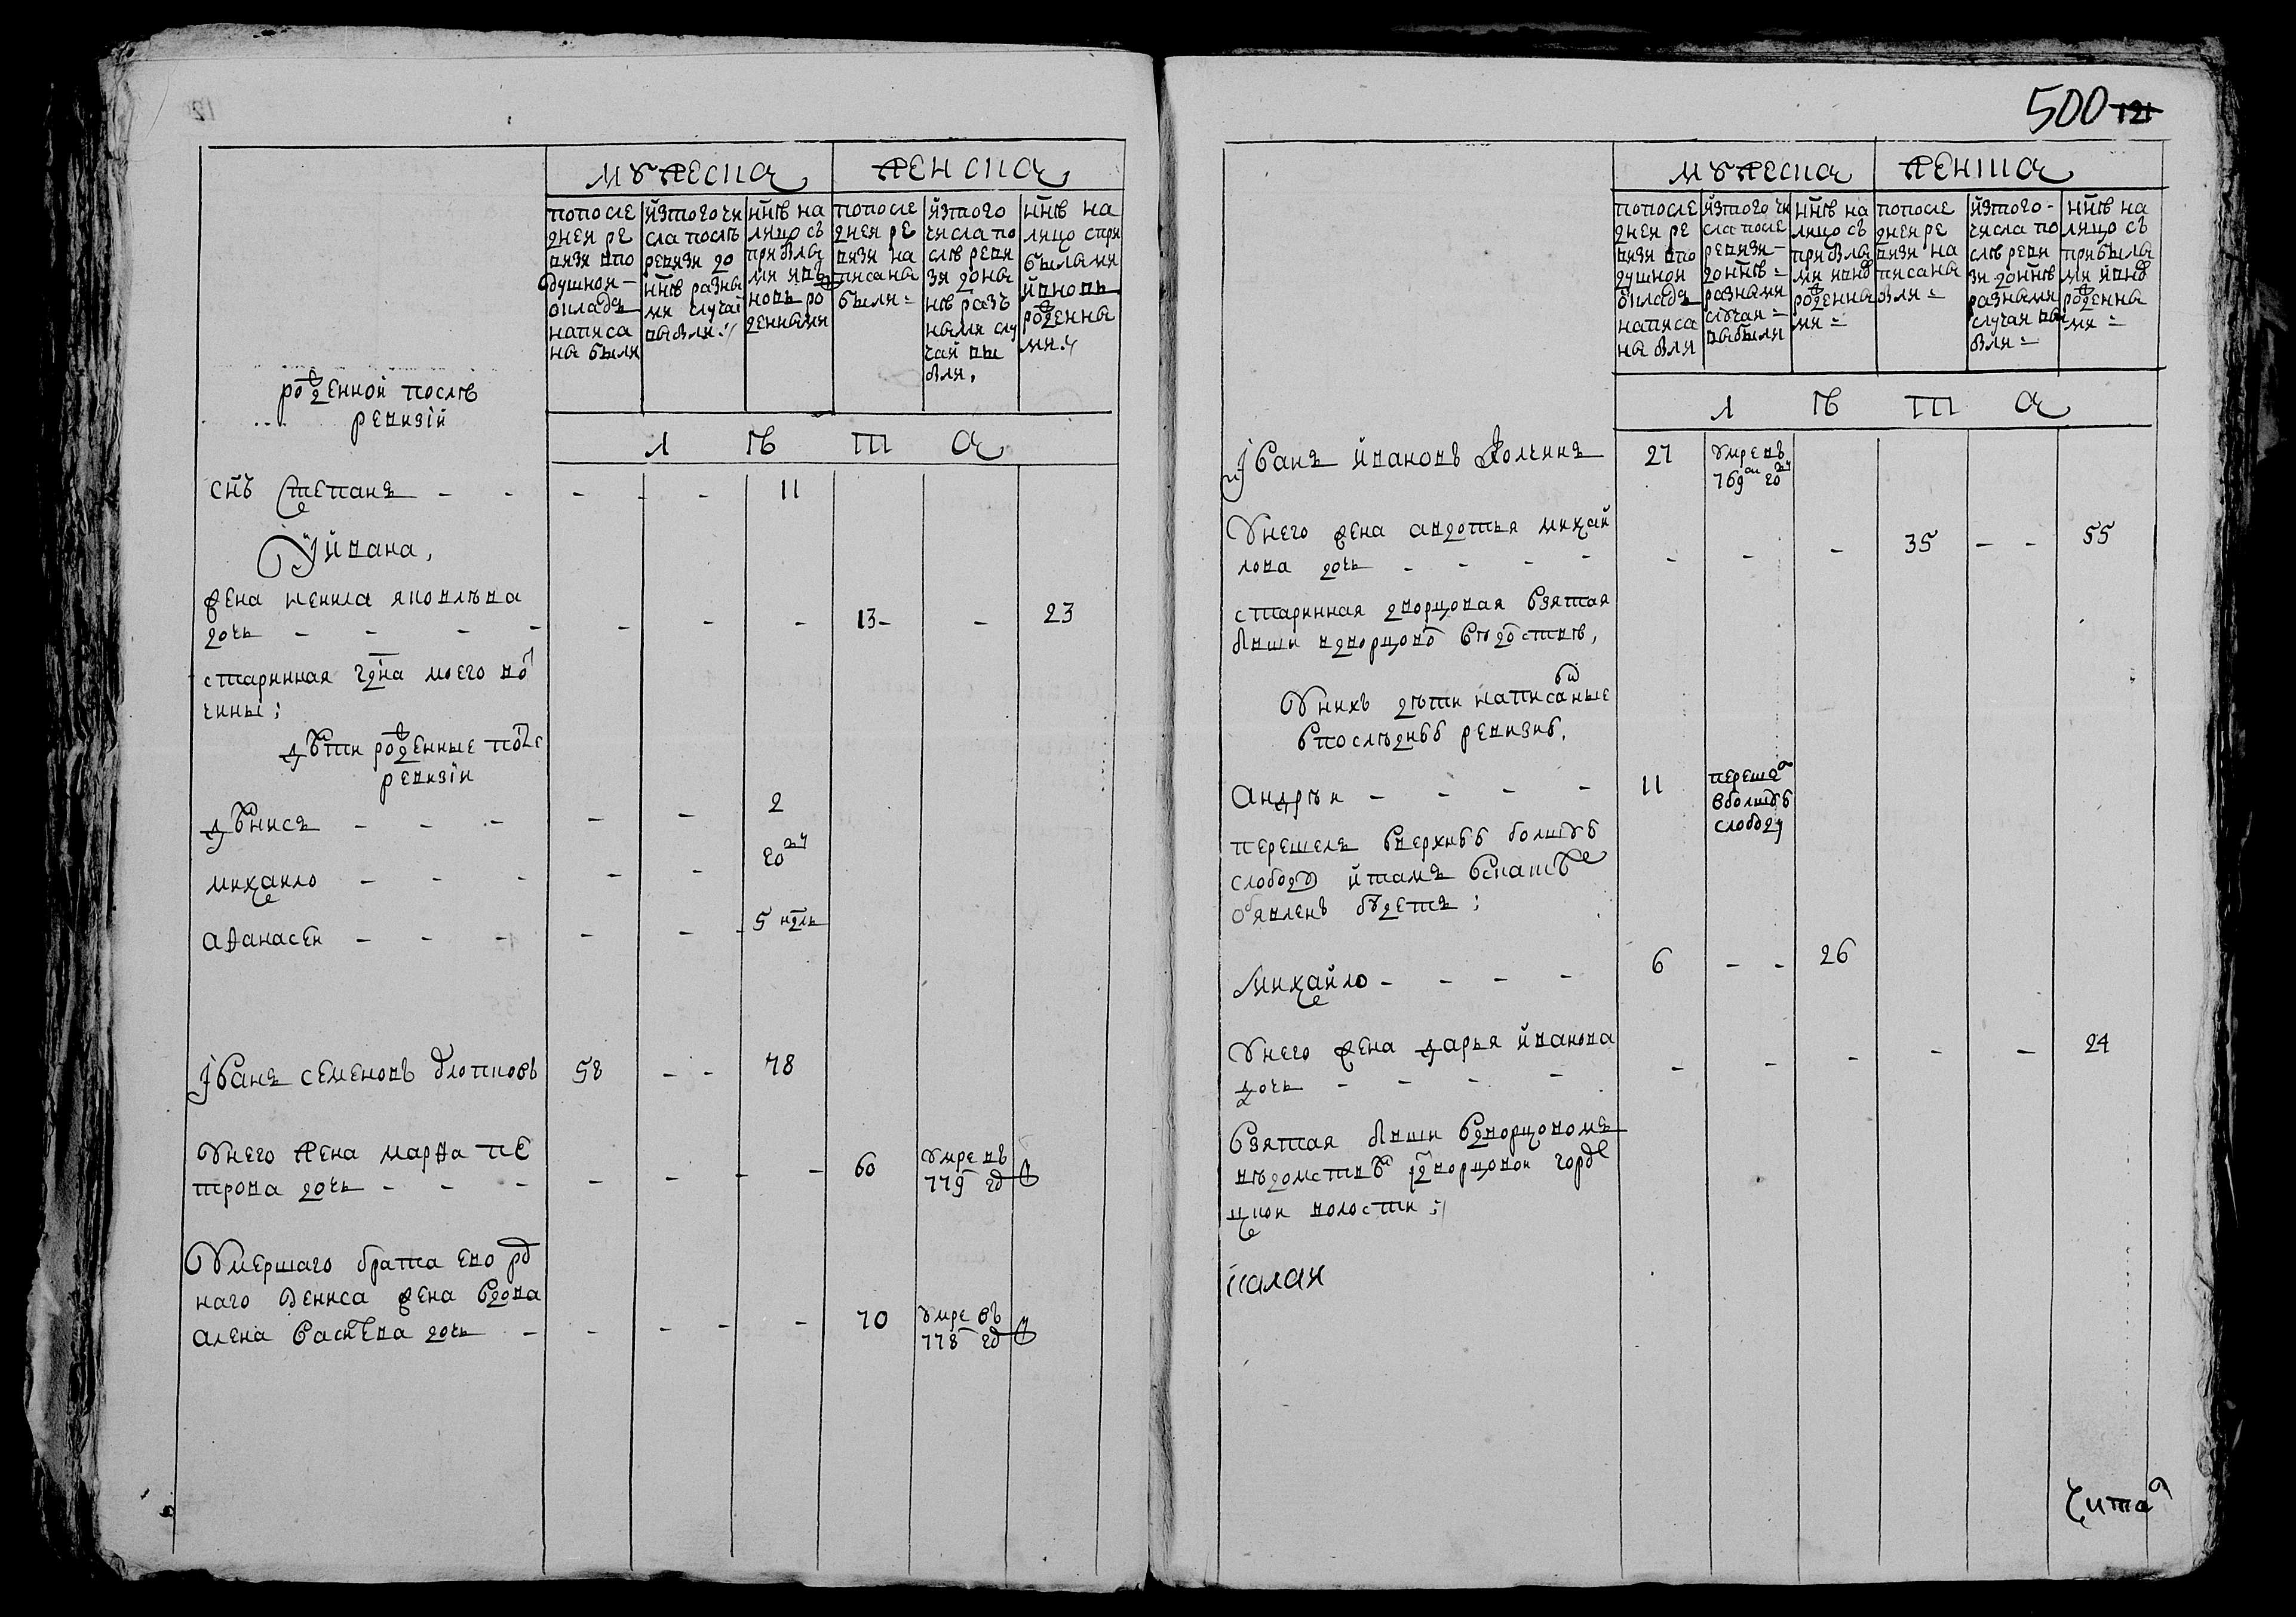 мужеска
женска
попосле
дней ре
визи впо
душной
окладъ
написа
на были
изтого чи
сла послѣ
ревизи до
ннѣ разны
ми случаи
выбыли
ннѣ на
лицо съ
прибылы
ми ивъ
новь ро
жденными
попосле
дней ре
визи на
писаны
были
изтого
числа по
слѣ реви
зи доны
нѣ разъ
ными слу
чаи вы
были
ннѣ на
лицо спри
былыми
ивновь
рожденны
ми
л ѣ т а
рожденной послѣ
ревизіи
снъ степанъ - - - - - 11
У ивана,
жена ненила яковлѣва
дочь - - - - - - - 13 - - 23
старинная
моего во
чины;
дѣти рожденные после
ревизіи
дѣнисъ - - - - - 2
михаило - - - - - 20
афанасеи - - - - - 5 ндль
Іванъ семеновъ 58 - - 78
Унего жена марфа пе
трова дочь - - - - - - - 60 умре въ
779 год
Умершаго брата ево род
наго дениса жена вдова
алена васильева дочь - - - - - 70 умре въ
778 год
500 121
мужеска
женска
попосле
дней ре
визи впо
душной
окладъ
написа
на были
изтого чи
сла после
ревизи
доннѣ
разными
случаи
выбыли
ннѣ на
лицо съ
прибылы
ми ивнов
рожденны
ми
попосле
дней ре
визи на
писаны
были
изтого
числа по
слѣ реви
зи доннѣ
разными
случаи вы
были
ннѣ на
лицо съ
прибылы
ми ивнов
рожденны
ми
л ѣ т а
Іванъ ивановъ 27 умре въ
769 году
Унего жена авдотья михаи
лова дочь - - - - - - - 35 - - 55
старинная дворцовая взятая
Унихъ дѣти написаные
впослѣднѣѣ ревизиѣ.
Андрѣи - - - - 11 перешел
вболшую
слободу
перешелъ вверхнѣѣ болшую
слободу итамъ
обявленъ будетъ;
Михаило - - - - 6 - - 26
Унего жена дарья иванова
дочь - - - - - - - - - 24
взятая вдворцовомъ
вѣдомствѣ дворцовои
волости;
чита